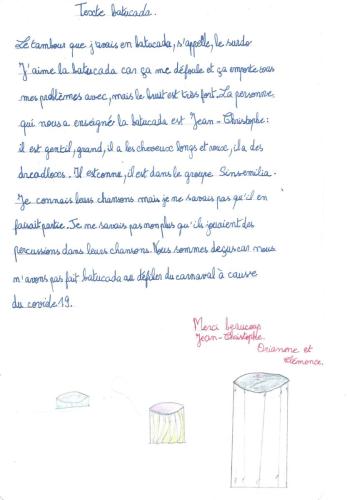 Texte batucada.
Le tambour que j'avais en batucada, s'appelle, le surdo
J'aime la batucada car ça me défoule et ça emporte tous
mes problèmes avec, mais le bruit est très fort. La personne
qui nous a enseigné la batucada est Jean-Christophe:
il est gentil, grand, il a les cheveux longs et roux, il a des
dreadloxs. Il est connu, il est dans le groupe. Sinsemilia.
Je connais leurs chansons mais je ne savais pas qu'il en
faisait partie. Je ne savais pas non plus qu'ils jouaient des
percussions dans leurs chansons. Nous sommes déçus car nous
n'avons pas fait batucada au défiler du carnaval à cause
du covide 19.
Merci beaucoup
Jean-Christophe.
Orianne et
Clémence.